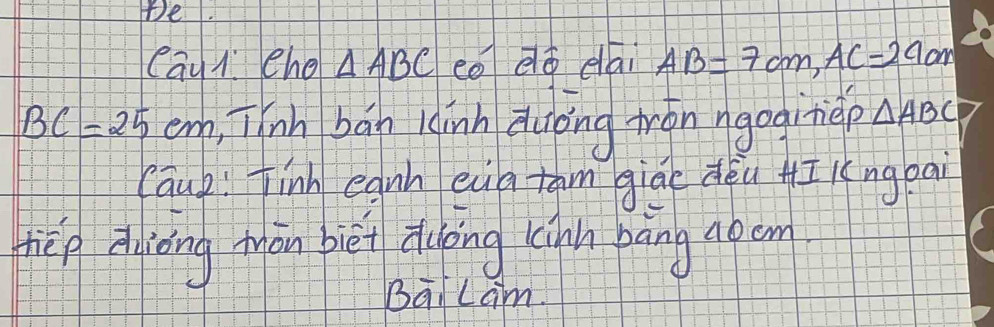 Đề
Câu 1: Cho Δ ABC có độ dài AB = 7 cm, AC = 24 cm
BC = 25 cm, Tính bán kính đường tròn ngoại tiếp Δ ABC?
Câu 2: Tính cạnh của tam giác đều HIK ngoại
tiếp đường tròn biết đường kính bằng 40 cm.
Bài Làm.